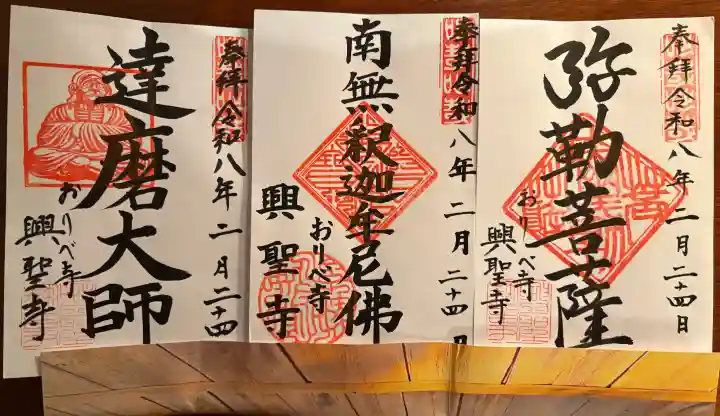 奉拝令和八年二月二十四日
弥勒菩薩
おりべ寺
興聖寺
奉拝令和八年二月二十四日
南無釈迦牟尼佛
おりべ寺
興聖寺
奉拝令和八年二月二十四
達磨大師
おりべ寺
興聖寺